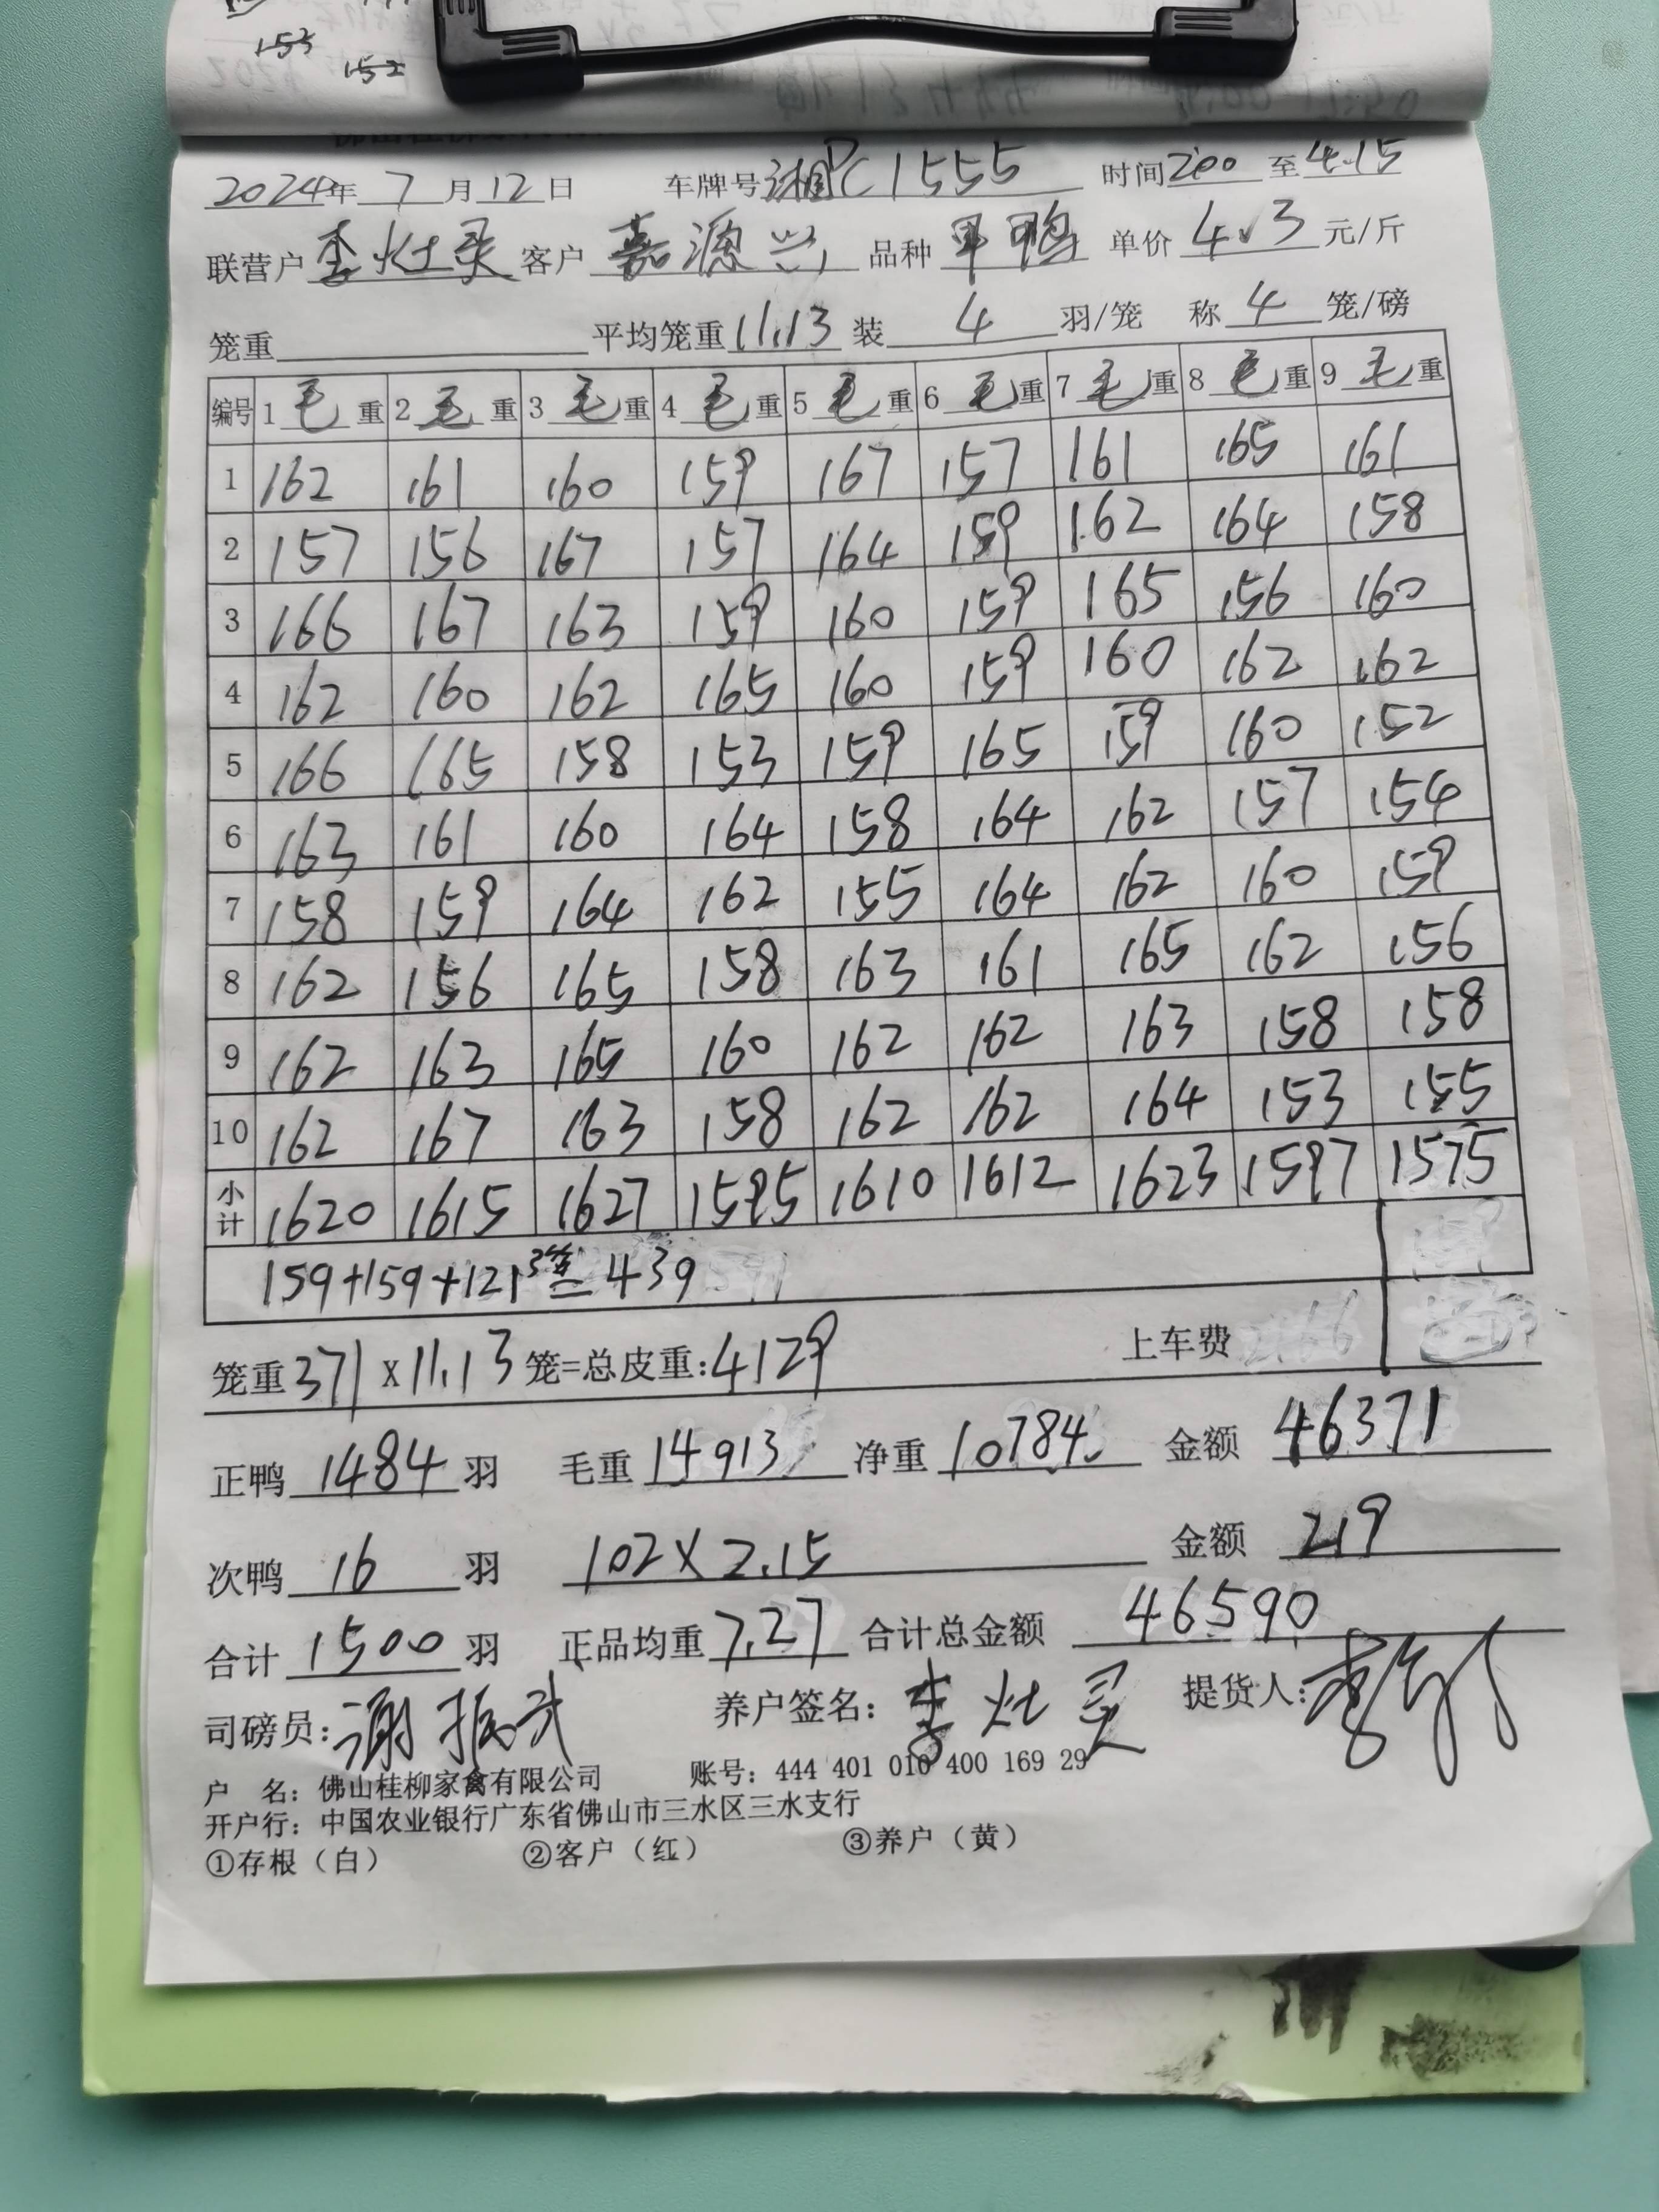 153
152
2024年 7 月 12 日 车牌号 湘C1555 时间 200 至 4.15
联营户 李灶灵 客户 嘉源兴 品种 早鸭 单价 4.3 元/斤
笼重 平均笼重 11.13 装 4 羽/笼 称 4 笼/磅
编号 1 毛 重 2 毛 重 3 毛 重 4 毛 重 5 毛 重 6 毛 重 7 毛 重 8 毛 重 9 毛 重
1 162 161 160 159 167 157 161 165 161
2 157 156 167 157 164 159 162 164 158
3 166 167 163 159 160 159 165 156 160
4 162 160 162 165 160 159 160 162 162
5 166 165 158 153 159 165 159 160 152
6 163 161 160 164 158 164 162 157 154
7 158 159 164 162 155 164 162 160 159
8 162 156 165 158 163 161 165 162 156
9 162 163 165 160 162 162 163 158 158
10 162 167 163 158 162 162 164 153 155
小计 1620 1615 1627 1595 1610 1612 1623 1597 1575
159+159+121 3笼=439
笼重 371 x 11.13 笼=总皮重: 4129 上车费
正鸭 1484 羽 毛重 14913 净重 10784 金额 46371
次鸭 16 羽 102 x 2.15 金额 219
合计 1500 羽 正品均重 7.27 合计总金额 46590
司磅员: 谢振 养户签名: 李灶灵 提货人:
户 名: 佛山桂柳家禽有限公司 账号: 444 401 010 400 169 29
开户行: 中国农业银行广东省佛山市三水区三水支行
①存根（白） ②客户（红） ③养户（黄）